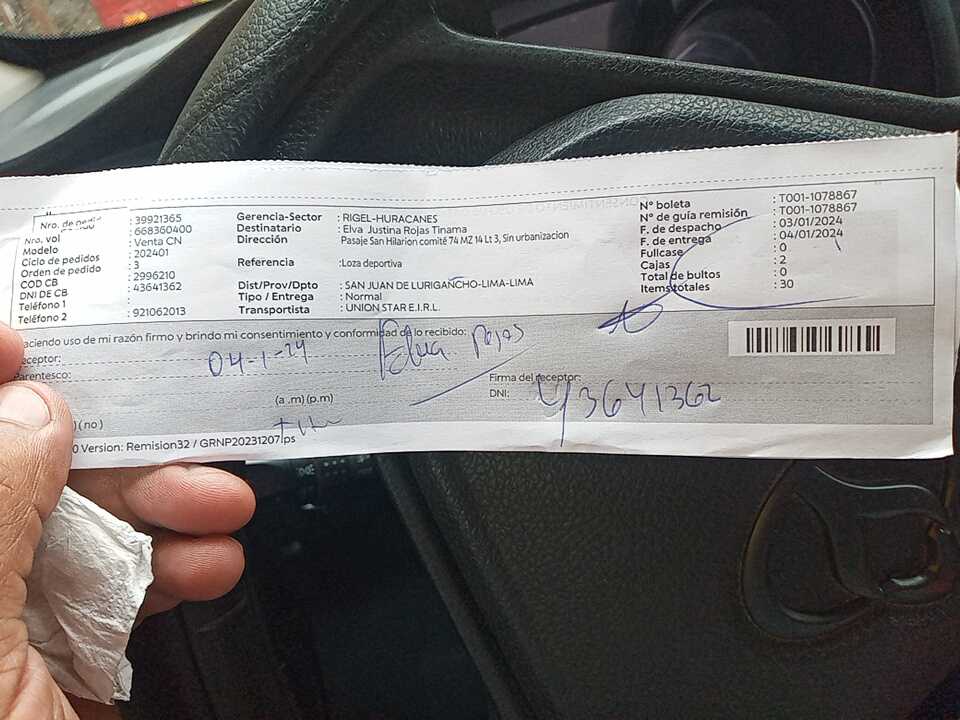 Nro. de pedido : 39921365
Nro. vol : 668360400
Modelo : Venta CN
Ciclo de pedidos : 202401
Orden de pedido : 3
COD CB : 2996210
DNI DE CB : 43641362
Teléfono 1 :
Teléfono 2 : 921062013
Gerencia-Sector : RIGEL-HURACANES
Destinatario : Elva Justina Rojas Tinama
Dirección : Pasaje San Hilarion comité 74 MZ 14 Lt 3, Sin urbanizacion
Referencia : Loza deportiva
Dist/Prov/Dpto : SAN JUAN DE LURIGANCHO-LIMA-LIMA
Tipo / Entrega : Normal
Transportista : UNION STAR E.I.R.L.
N° boleta : T001-1078867
N° de guía remisión : T001-1078867
F. de despacho : 03/01/2024
F. de entrega : 04/01/2024
Fullcase : 0
Cajas : 2
Total de bultos : 0
Items totales : 30
aciendo uso de mi razón firmo y brindo mi consentimiento y conformidad de lo recibido:
eceptor:
04-1-24 Elva Rojas
Parentesco:
(a .m) (p.m)
Firma del receptor:
DNI: 43641362
) ( no )
0 Version: Remision32 / GRNP20231207.ps